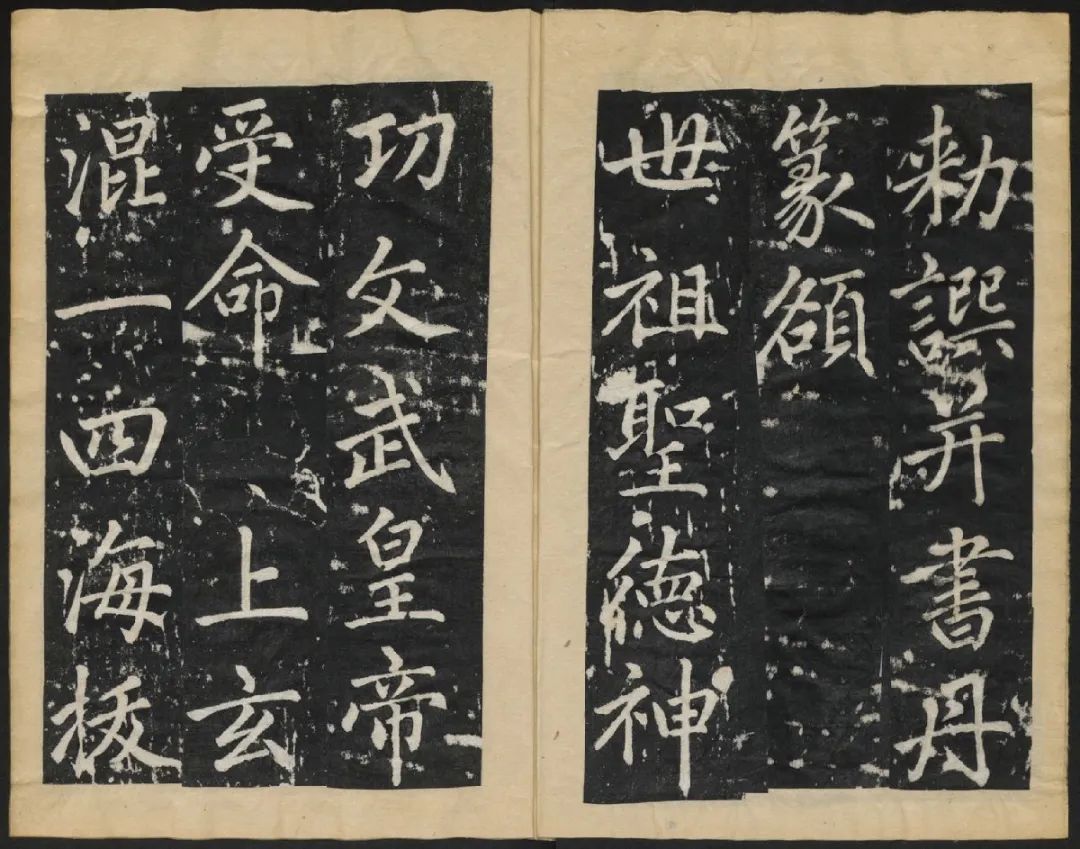 勅譔并書丹
篆額
世祖聖德神
功文武皇帝
受命上玄
混一四海拔